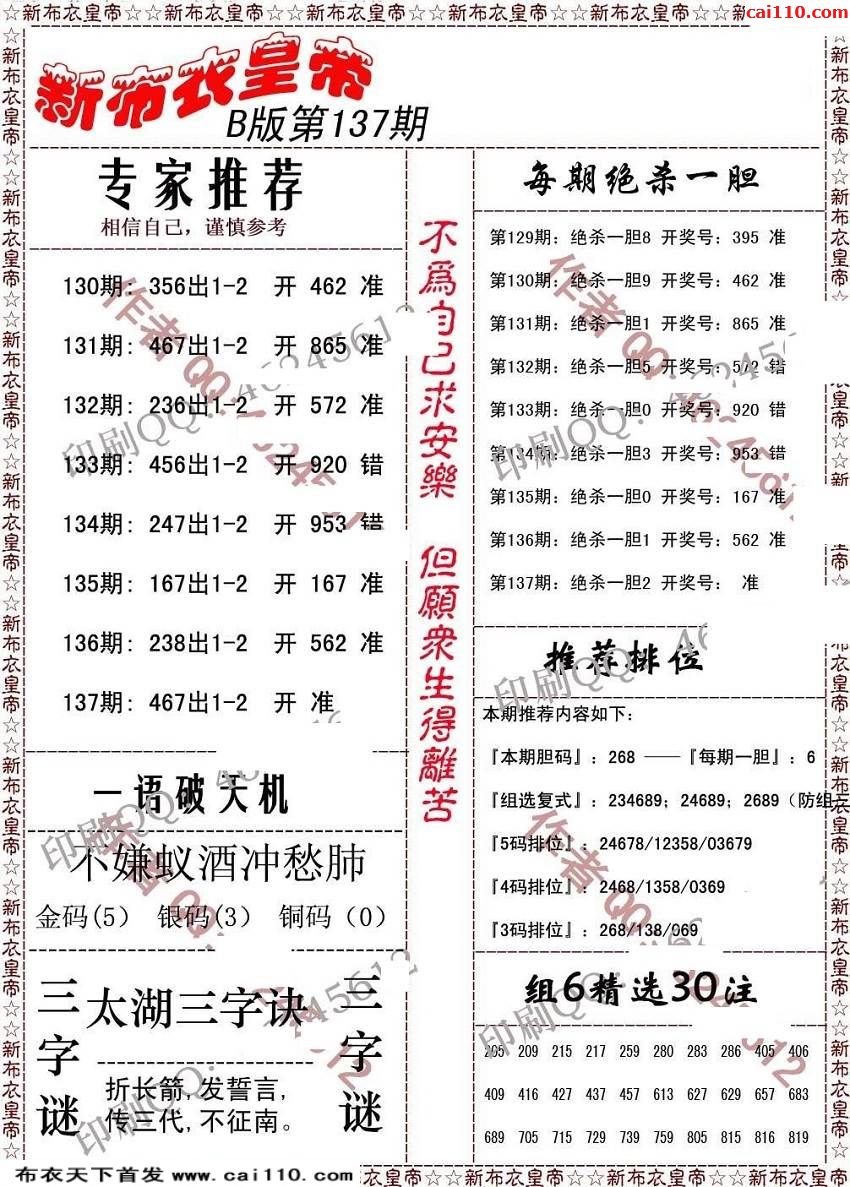 ☆☆新布衣皇帝☆☆新布衣皇帝☆☆新布衣皇帝☆☆新布衣皇帝☆☆新布衣皇帝☆☆新
cai110.com
新布衣皇帝
B版第137期
专家推荐
相信自己，谨慎参考
130期: 356出1-2 开 462 准
131期: 467出1-2 开 865 准
132期: 236出1-2 开 572 准
133期: 456出1-2 开 920 错
134期: 247出1-2 开 953 错
135期: 167出1-2 开 167 准
136期: 238出1-2 开 562 准
137期: 467出1-2 开 准
一语破天机
不嫌蚁酒冲愁肺
金码(5) 银码(3) 铜码（0）
三字谜
太湖三字诀
折长箭,发誓言,
传三代,不征南。
三字谜
不為自己求安樂 但願衆生得離苦
每期绝杀一胆
第129期：绝杀一胆8 开奖号：395 准
第130期：绝杀一胆9 开奖号：462 准
第131期：绝杀一胆1 开奖号：865 准
第132期：绝杀一胆5 开奖号：572 错
第133期：绝杀一胆0 开奖号：920 错
第134期：绝杀一胆3 开奖号：953 错
第135期：绝杀一胆0 开奖号：167 准
第136期：绝杀一胆1 开奖号：562 准
第137期：绝杀一胆2 开奖号： 准
推荐排位
本期推荐内容如下：
『本期胆码』：268 ——『每期一胆』：6
『组选复式』：234689；24689；2689（防组三
『5码排位』：24678/12358/03679
『4码排位』：2468/1358/0369
『3码排位』：268/138/069
组6精选30注
205 209 215 217 259 280 283 286 405 406
409 416 427 437 457 613 627 629 657 683
689 705 715 729 739 759 805 815 816 819
布衣天下首发 www.cai110.com
衣皇帝☆☆新布衣皇帝☆☆新布衣皇帝☆☆新布衣皇帝☆